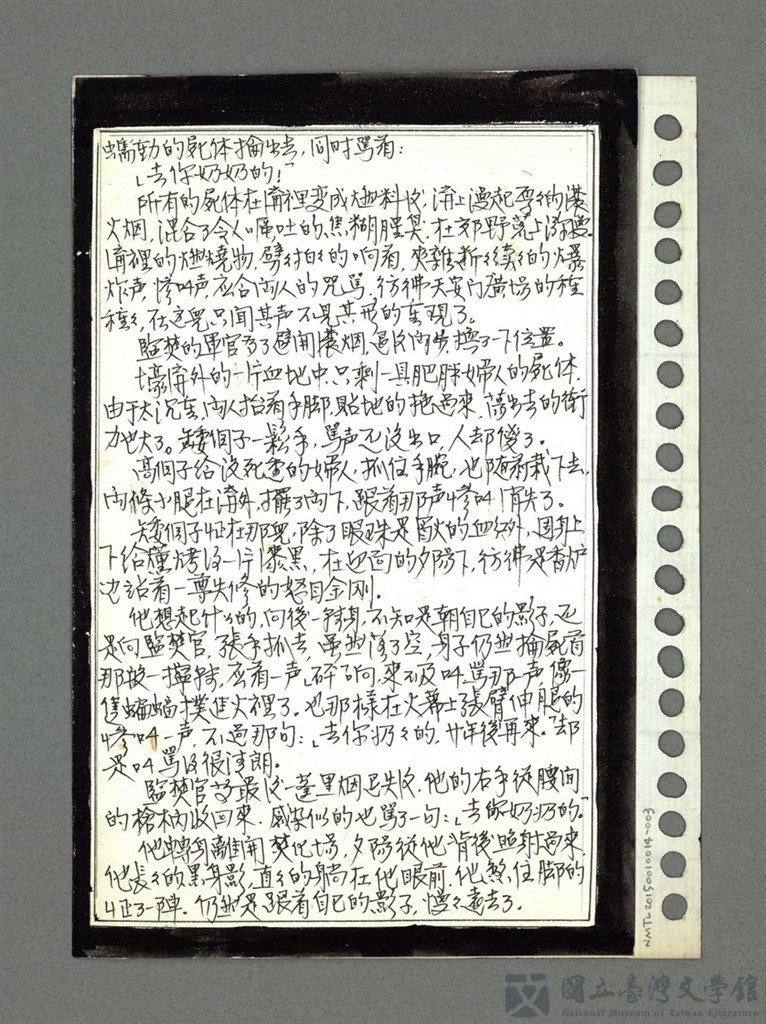 蠕動的屍体掄出去，同时罵着：
「去你奶奶的！」
所有的屍体在溝裡变成燃料後，溝上漫起雲々的濃
火烟，混合了令人嘔吐的焦糊腥臭，在郊野荒上
溝裡的燃燒物，劈々拍々的响着，夾雜断々續々的爆
炸声，慘叫声，应合兩人的咒罵，彷彿天安门廣場的種
種々，在这兒只聞其声不見其形的重現了。
監焚的軍官为了避開濃烟，退後兩步，換了一下位置。
壕溝外的一片血地中，只剩一具肥胖婦人的屍体，
由于太沉重，兩人抬着手脚，貼地的拖过來，蕩出去的衝
力也大了。矮個子一鬆手，罵声还沒出口，人却傻了。
高個子给沒死透的婦人，抓住手腕，也随着栽下去，
兩條小腿在溝外，擺了兩下，跟着那声慘叫消失了。
矮個子怔在那兒，除了眼珠是冒火的血红外，週身上
下给燻烤成一片漆黑，在迎面的夕陽下，彷彿是香炉
边站着一尊失修的怒目金刚。
他想起什么的，向後一转身，不知是朝自己的影子，还
是向監焚官，張手抓去，虽然落了空，身子仍然掄屍首
那般一擰转，应着一声「砰」响，來不及叫罵那一声，像一
隻蝙蝠撲進火裡了。也那樣在火幕上張臂伸腿的
慘叫一声，不過那句：「去你奶々的，廿年後再來。」却
是叫罵得很清朗。
監焚官等最後一蓬黑烟已失後，他的右手從腰间
的槍柄收回來，感染似的也罵了一句：「去你奶奶的。」
他轉身離開焚化場，夕陽從他背後照射过來，
他長々的黑身影，直々的躺在他眼前，他煞住脚的
怔了一陣，仍然是跟着自己的影子，慢々遠去了。
NMTL20150010014-003
國立臺灣文學館
National Museum of Taiwan Literature